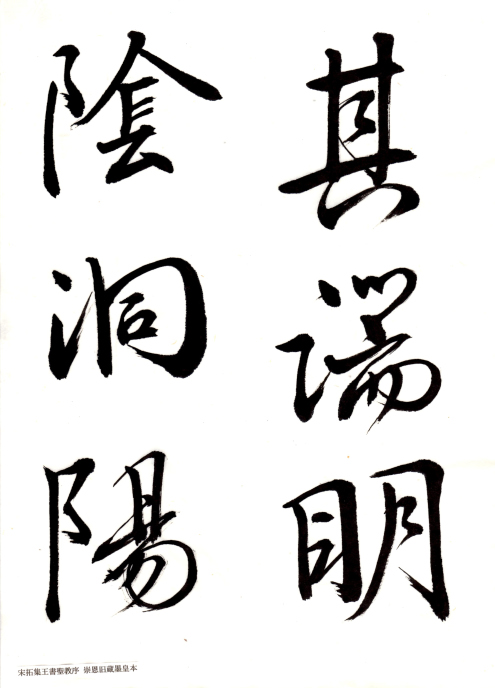 其端明
陰洞陽
宋拓集王書聖教序 崇恩旧蔵墨皇本